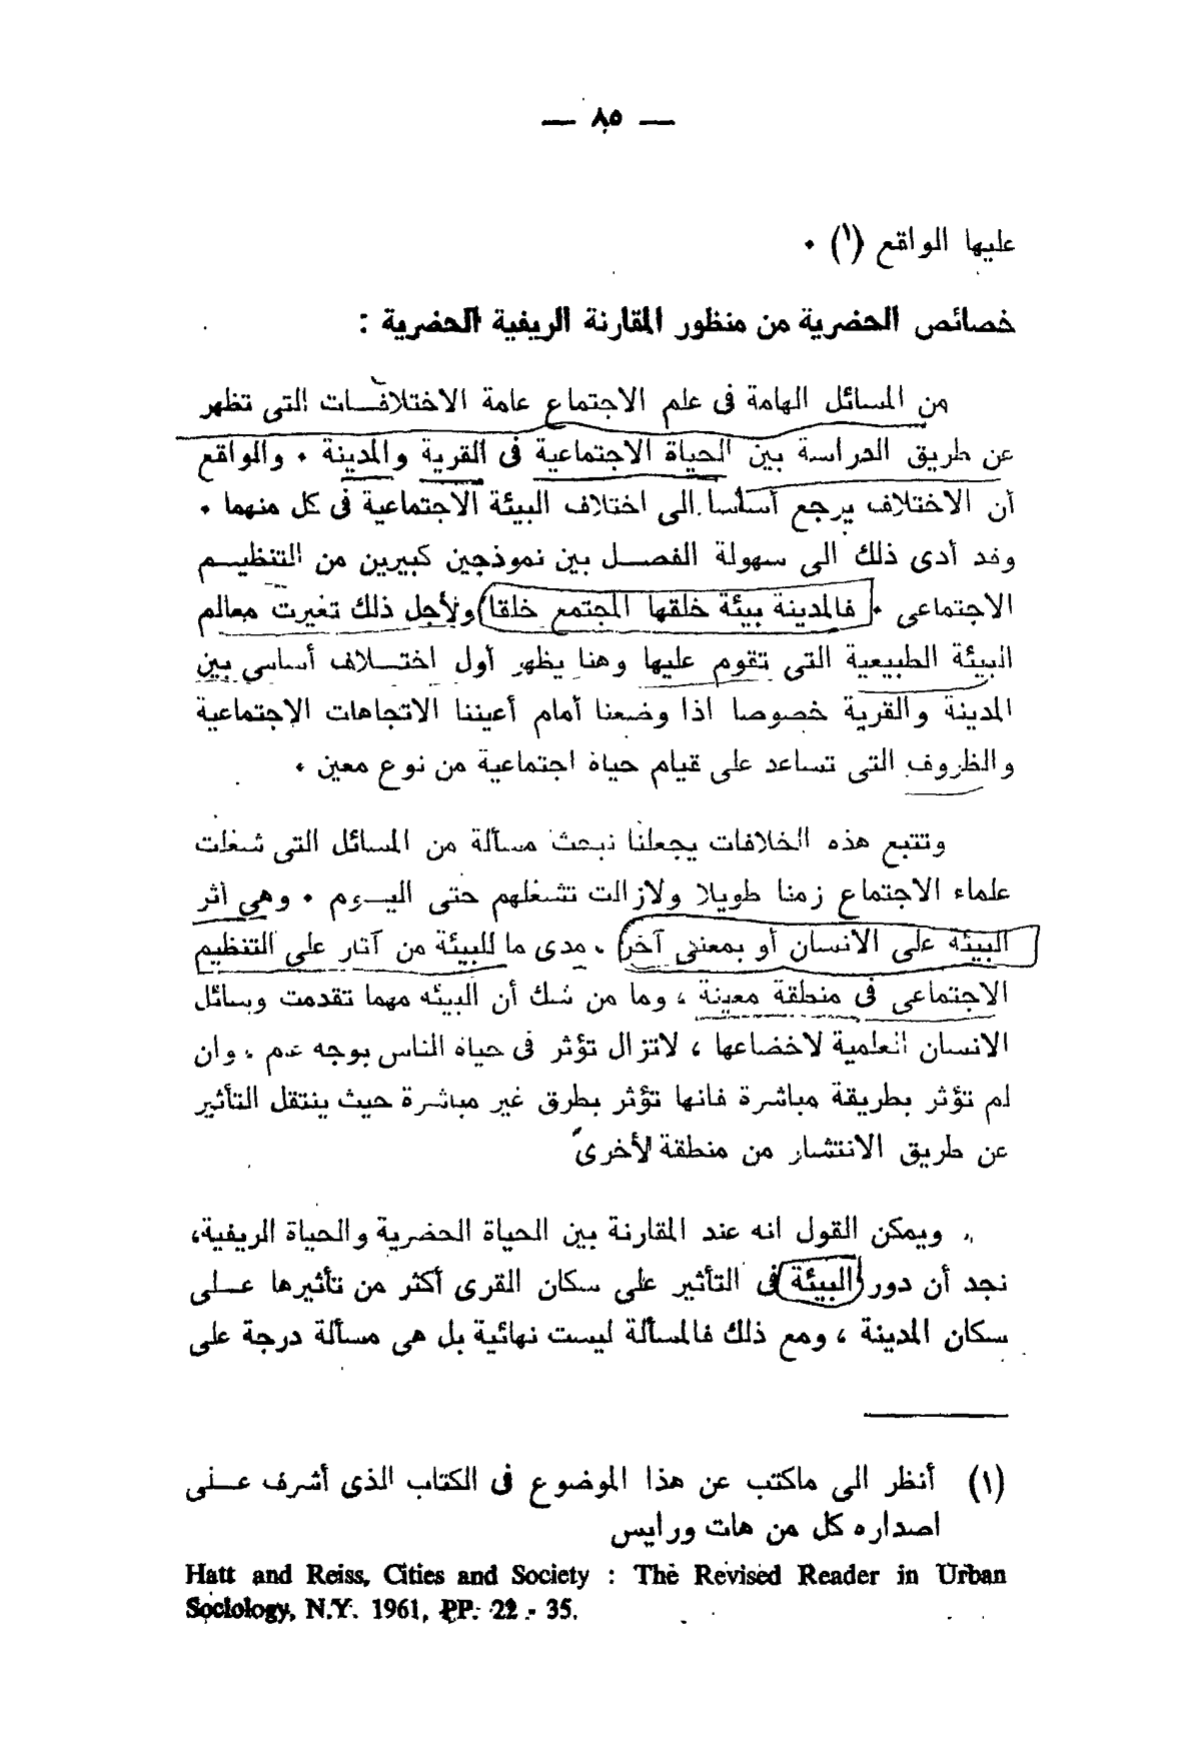 — ٨٥ —
عليها الواقع (١) ٠
خصائص الحضرية من منظور المقارنة الريفية الحضرية :
من المسائل الهامة فى علم الاجتماع عامة الاختلافات التى تظهر
عن طريق الدراسة بين الحياة الاجتماعية فى القرية والمدينة ٠ والواقع
أن الاختلاف يرجع أساسا الى اختلاف البيئة الاجتماعية فى كل منهما ٠
وقد أدى ذلك الى سهولة الفصل بين نموذجين كبيرين من التنظيم
الاجتماعى ٠ فالمدينة بيئة خلقها المجتمع خلقا ولأجل ذلك تغيرت معالم
البيئة الطبيعية التى تقوم عليها وهنا يظهر أول اختلاف أساسى بين
المدينة والقرية خصوصا اذا وضعنا أمام أعيننا الاتجاهات الاجتماعية
والظروف التى تساعد على قيام حياة اجتماعية من نوع معين ٠
وتتبع هذه الخلافات يجعلنا نبحث مسألة من المسائل التى شغلت
علماء الاجتماع زمنا طويلا ولازالت تشغلهم حتى اليوم ٠ وهى أثر
البيئة على الانسان أو بمعنى آخر ، مدى ما للبيئة من آثار على التنظيم
الاجتماعى فى منطقة معينة ، وما من شك أن البيئه مهما تقدمت وسائل
الانسان العلمية لاخضاعها ، لاتزال تؤثر فى حياة الناس بوجه عام ، وان
لم تؤثر بطريقة مباشرة فانها تؤثر بطرق غير مباشرة حيث ينتقل التأثير
عن طريق الانتشار من منطقة لأخرى
ويمكن القول انه عند المقارنة بين الحياة الحضرية والحياة الريفية،
نجد أن دور البيئة فى التأثير على سكان القرى أكثر من تأثيرها على
سكان المدينة ، ومع ذلك فالمسألة ليست نهائية بل هى مسألة درجة على
(١) أنظر الى ماكتب عن هذا الموضوع فى الكتاب الذى أشرف على
اصداره كل من هات ورايس
Hatt and Reiss, Cities and Society : The Revised Reader in Urban
Sociology, N.Y. 1961, PP. 22 - 35.